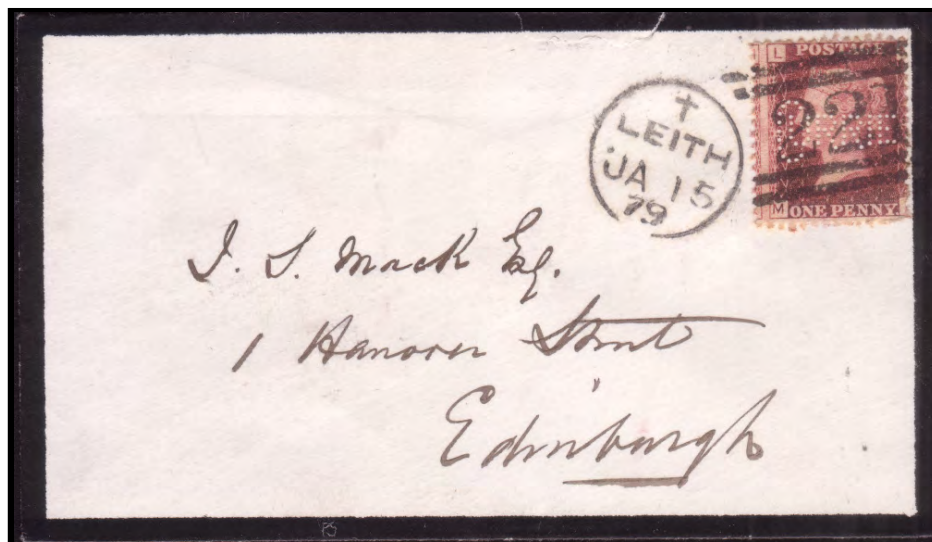 L POSTAGE
221
M ONE PENNY
+
LEITH
JA 15
79
J. S. Mack Esq.
1 Hanover Street
Edinburgh
PS